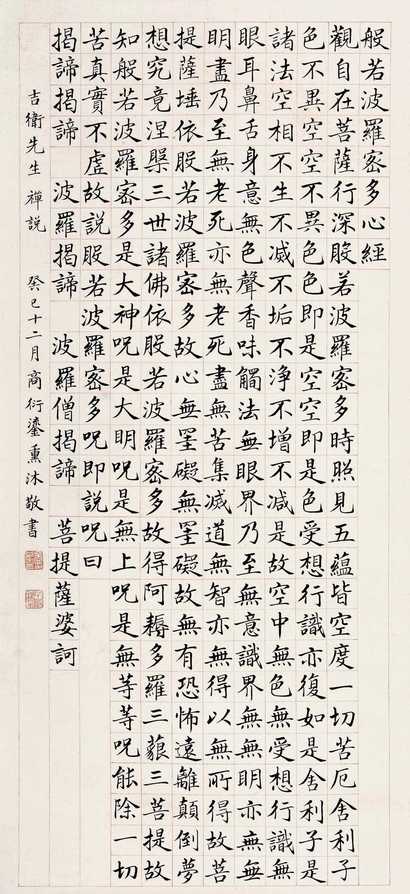 般若波羅密多心經
觀自在菩薩行深般若波羅密多時照見五蘊皆空度一切苦厄舍利子
色不異空空不異色色即是空空即是色受想行識亦復如是舍利子是
諸法空相不生不滅不垢不淨不增不減是故空中無色無受想行識無
眼耳鼻舌身意無色聲香味觸法無眼界乃至無意識界無無明亦無無
明盡乃至無老死亦無老死盡無苦集滅道無智亦無得以無所得故菩
提薩埵依般若波羅密多故心無罣礙無罣礙故無有恐怖遠離顛倒夢
想究竟涅槃三世諸佛依般若波羅密多故得阿耨多羅三藐三菩提故
知般若波羅密多是大神咒是大明咒是無上咒是無等等咒能除一切
苦真實不虛故說般若波羅密多咒即說咒曰
揭諦揭諦 波羅揭諦 波羅僧揭諦 菩提薩婆訶
吉衛先生 禪說 癸巳十二月商衍鎏熏沐敬書